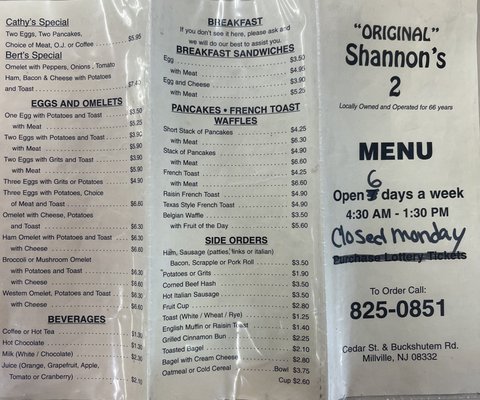 Cathy's Special
Two Eggs, Two Pancakes,
Choice of Meat, O.J. or Coffee $5.95
Bert's Special
Omelet with Peppers, Onions , Tomato
Ham, Bacon & Cheese with Potatoes
and Toast $7.40
EGGS AND OMELETS
One Egg with Potatoes and Toast $3.50
with Meat $5.25
Two Eggs with Potatoes and Toast $3.90
with Meat $5.90
Two Eggs with Grits and Toast $3.90
with Meat $5.90
Three Eggs with Grits or Potatoes $4.90
Three Eggs with Potatoes, Choice
of Meat and Toast $6.80
Omelet with Cheese, Potatoes
and Toast $6.30
Ham Omelet with Potatoes and Toast $6.30
with Cheese $6.60
Broccoli or Mushroom Omelet
with Potatoes and Toast $6.30
with Cheese $6.60
Western Omelet, Potatoes and Toast $6.30
with Cheese $6.60
BEVERAGES
Coffee or Hot Tea $1.30
Hot Chocolate $1.30
Milk (White / Chocolate) $2.30
Juice (Orange, Grapefruit, Apple,
Tomato or Cranberry) $2.10
BREAKFAST
If you don't see it here, please ask and
we will do our best to assist you.
BREAKFAST SANDWICHES
Egg $3.50
with Meat $4.95
Egg and Cheese $3.90
with Meat $5.25
PANCAKES • FRENCH TOAST
WAFFLES
Short Stack of Pancakes $4.25
with Meat $6.30
Stack of Pancakes $4.90
with Meat $6.60
French Toast $4.25
with Meat $6.60
Raisin French Toast $4.90
Texas Style French Toast $4.90
Belgian Waffle $3.50
with Fruit of the Day $5.60
SIDE ORDERS
Ham, Sausage (patties, links or italian)
Bacon, Scrapple or Pork Roll $3.50
Potatoes or Grits $1.90
Corned Beef Hash $3.50
Hot Italian Sausage $3.50
Fruit Cup $2.80
Toast (White / Wheat / Rye) $1.25
English Muffin or Raisin Toast $1.40
Grilled Cinnamon Bun $2.25
Toasted Bagel $2.10
Bagel with Cream Cheese $2.80
Oatmeal or Cold Cereal Bowl $3.75
Cup $2.60
"ORIGINAL"
Shannon's
2
Locally Owned and Operated for 66 years
MENU
Open 6 days a week
4:30 AM - 1:30 PM
Closed Monday
Purchase Lottery Tickets
To Order Call:
825-0851
Cedar St. & Buckshutem Rd.
Millville, NJ 08332